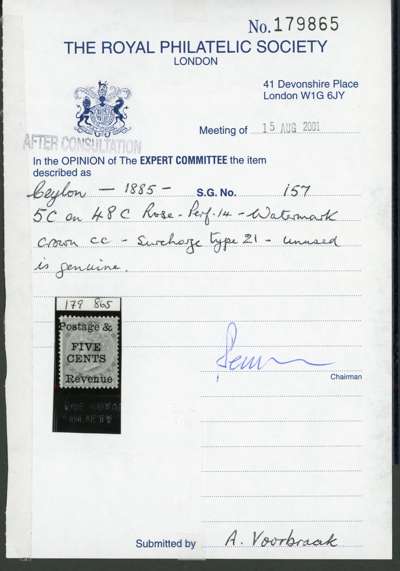 No. 179865
THE ROYAL PHILATELIC SOCIETY
LONDON
41 Devonshire Place
London W1G 6JY
AFTER CONSULTATION
Meeting of 15 AUG 2001
In the OPINION of The EXPERT COMMITTEE the item
described as
Ceylon — 1885 — S.G. No. 157
5C on 48C Rose - Perf. 14 - Watermark
Crown CC - Surcharge type 21 - unused
is genuine.
179 865
Postage &
FIVE
CENTS
Revenue
Chairman
Submitted by A. Voorbraak